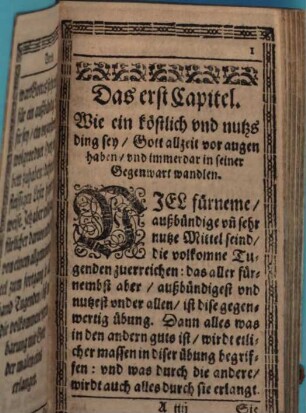 1
Das erst Capitel.
Wie ein köstlich vnd nutzs
ding sey / Gott allzeit vor augen
haben / vnd immerdar in seiner
Gegenwart wandlen.
VIEL fürneme /
außbündige vñ sehr
nutze Mittel seind /
die volkomne Tu-
genden zuerreichen : das aller für-
nembst aber / außbündigest vnd
nutzest vnder allen / ist dise gegen-
wertig übung. Dann alles was
in den andern guts ist / wirdt etli-
cher massen in diser übung begrif-
fen : vnd was durch die andere /
wirdt auch alles durch sie erlangt.
A iiij
Sie